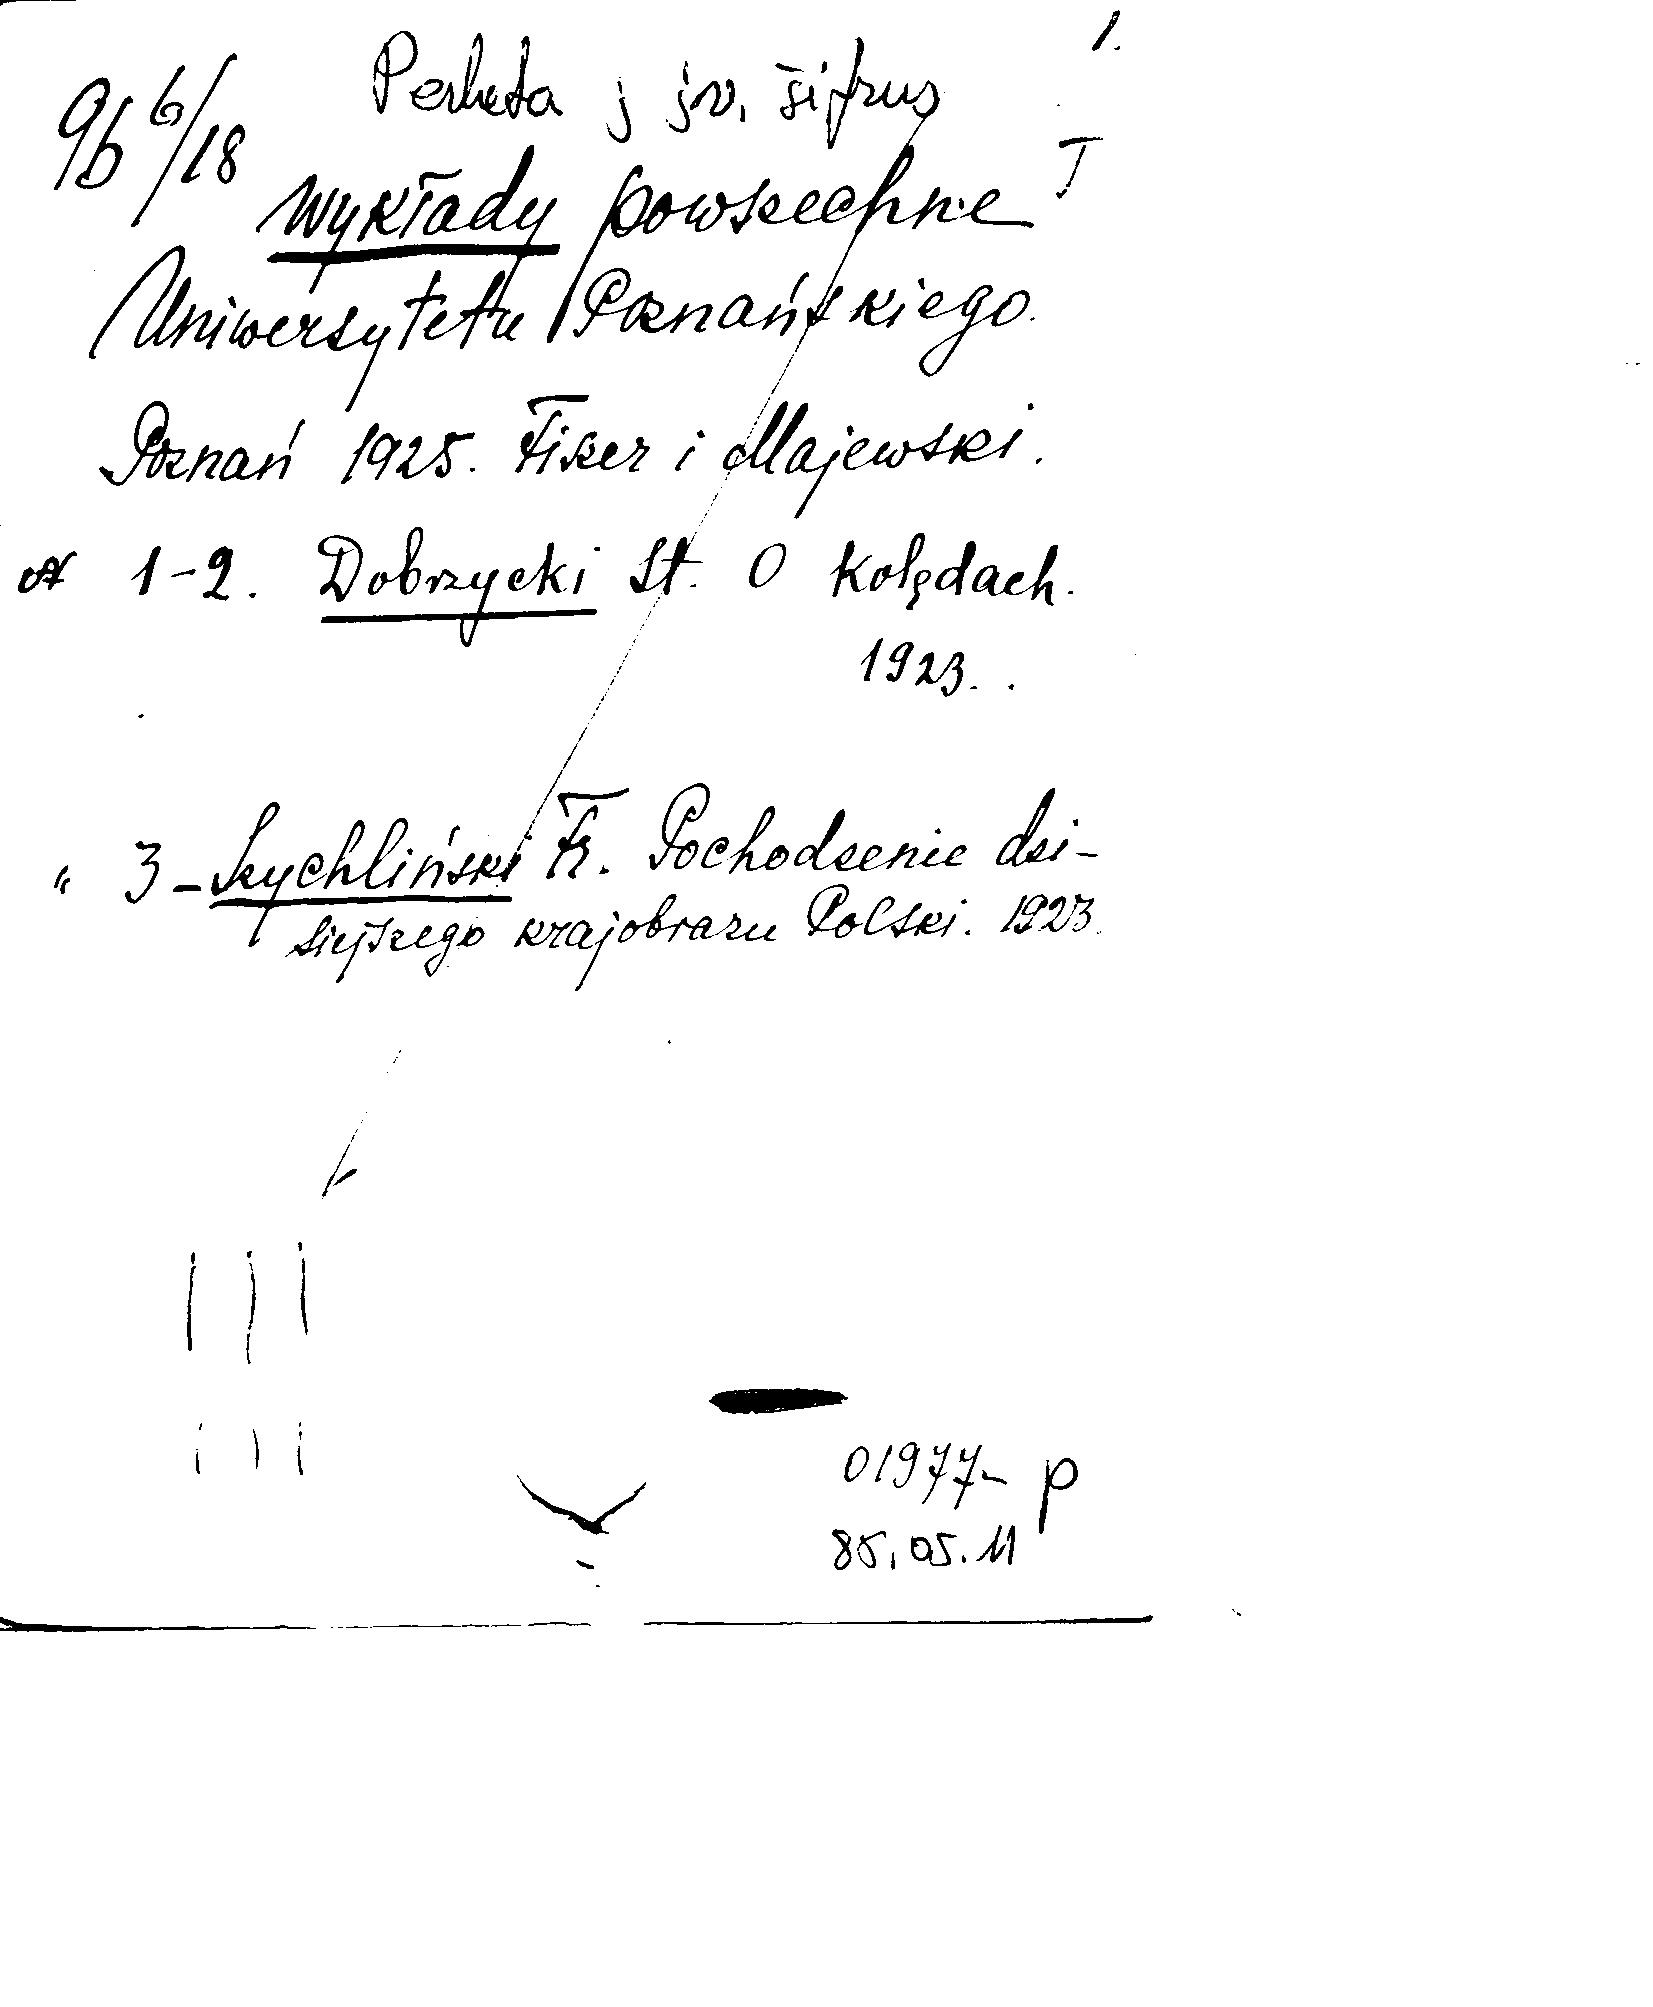 1.
Perkelta į įv. šifrus
9b 6/18
T
Wykłady powszechne
Uniwersytetu Poznańskiego.
Poznań 1925. Fiszer i Majewski.
A 1-2. Dobrzycki St. O kolędach.
1923.
" 3 - Szychliński Fr. Pochodzenie dzi-
siejszego krajobrazu Polski. 1923.
01977- p
85.05.11